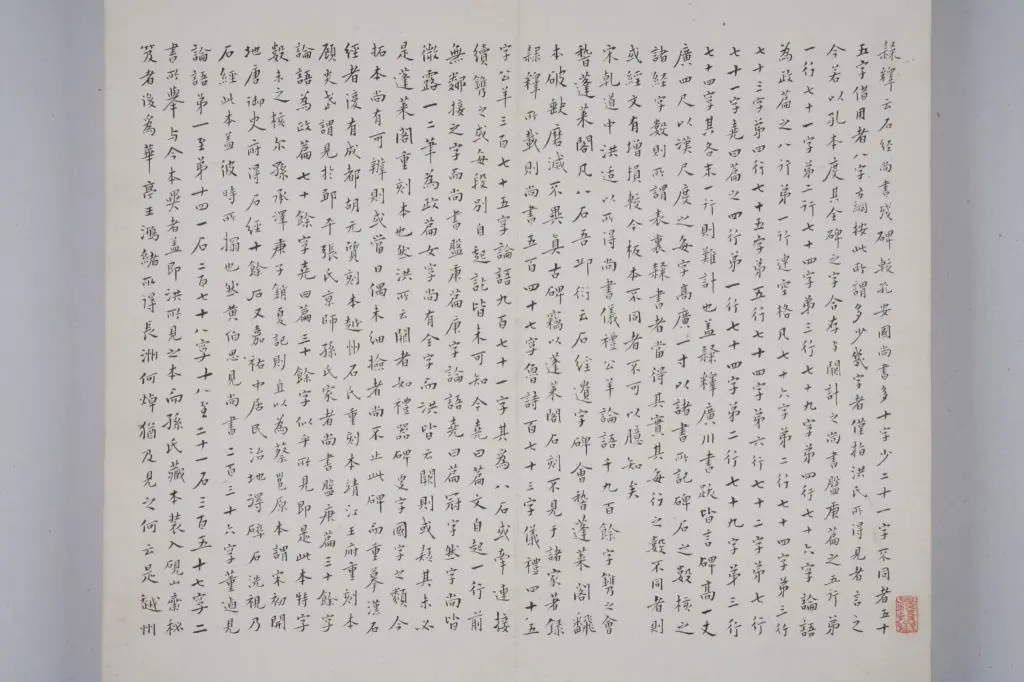 隸釋云石經尚書殘碑較孔安國尚書多十字少二十一字不同者五十
五字借用者八字方綱按此所謂多少幾字者僅指洪氏所得見者言之
今若以孔本度其全碑之字合存与闕計之尚書盤庚篇之五行第
一行七十一字第二行七十四字第三行七十九字第四行七十六字論語
為政篇之八行第一行連空格凡七十六字第二行七十四字第三行
七十三字第四行七十五字第五行七十四字第六行七十二字第七行
七十一字堯曰篇之四行第一行七十四字第二行七十九字第三行
七十四字其各末一行則難計也蓋隸釋廣川書跋皆言碑高一丈
廣四尺以漢尺度之每字高廣一寸以諸書所記碑石之數核之
諸經字數則所謂表裏隸書者當得其實其每行之數不同者則
或經文有增損較今板本不同者不可以臆知矣
宋乾道中洪适以所得尚書儀禮公羊論語千九百餘字鐫之會
稽蓬萊閣凡八石吾邱衍云石經遺字碑會稽蓬萊閣翻
本破缺磨滅不異真古碑竊以蓬萊閣石刻不見于諸家著錄
隸釋所載則尚書五百四十七字魯詩百七十三字儀禮四十五
字公羊三百七十五字論語九百七十一字其為八石或牽連接
續鐫之或每段別自起訖皆未可知今堯曰篇文自起一行前
無鄰接之字而尚書盤庚篇庚字論語堯曰篇冠字然字尚皆
微露一二筆為政篇女字尚有全字而洪皆云闕則或疑其未必
是蓬萊閣重刻本也然洪所云闕者如禮器碑叟字國字之類今
拓本尚有可辨則或當日偶未細撿者尚不止此碑而重摹漢石
經者湲有成都胡元質刻本越州石氏重刻本靖江王府重刻本
顧炎武謂見於鄒平張氏京師孫氏家者尚書盤庚篇三十餘字
論語為政篇七十餘字堯曰篇三十餘字似乎所見即是此本特字
數未之核尔孫承澤庚子銷夏記則直以為蔡邕原本謂宋初開
地唐御史府得石經十餘石又嘉祐中居民治地得碎石洗視乃
石經此本蓋彼時所搨也然黃伯思見尚書二百三十六字董逌見
論語第一至第十四一石二百七十八字十八至二十一石三百五十七字二
書所舉与今本異者蓋即洪所見之本而孫氏藏本裝入硯山齋秘
笈者後為華亭王鴻緒所得長洲何焯猶及見之何云是越州